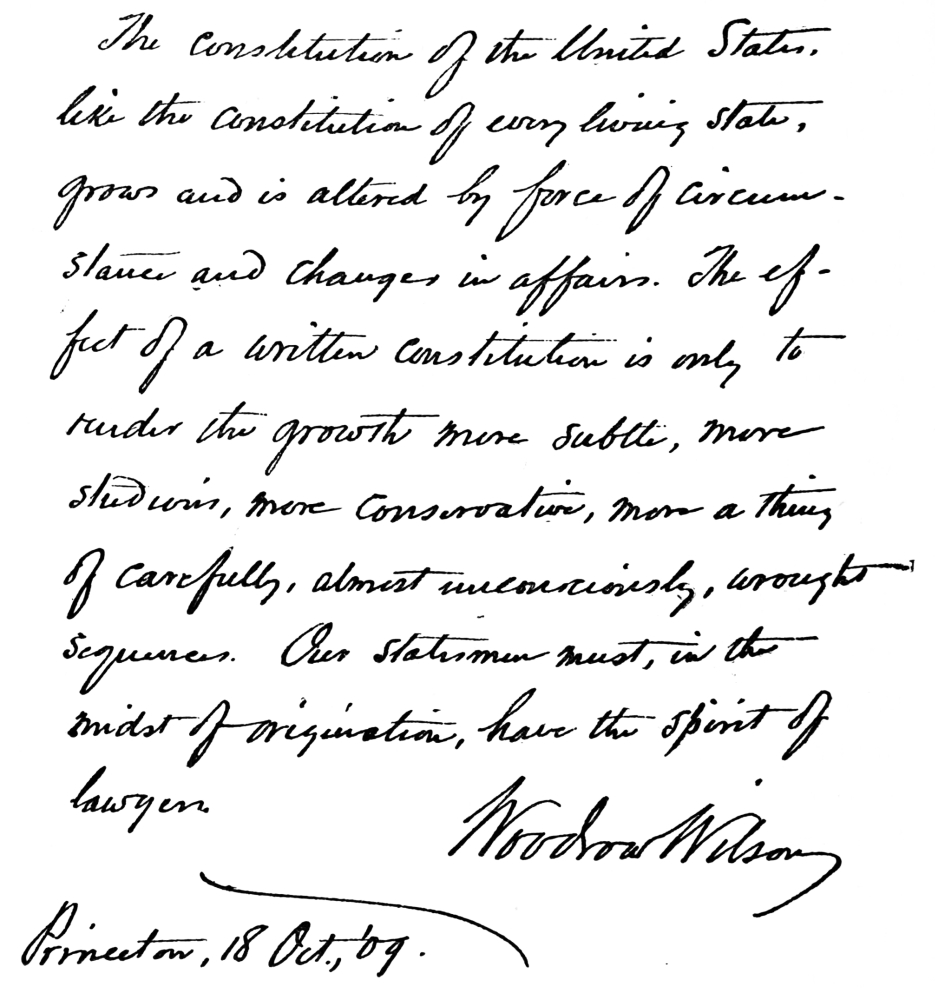 The constitution of the United States,
like the constitution of every living state,
grows and is altered by force of circum-
stance and changes in affairs. The ef-
fect of a written constitution is only to
render the growth more subtle, more
studious, more conservative, more a thing
of carefully, almost unconsciously, wrought
sequences. Our statesmen must, in the
midst of origination, have the spirit of
lawyers.
Woodrow Wilson
Princeton, 18 Oct., '09.